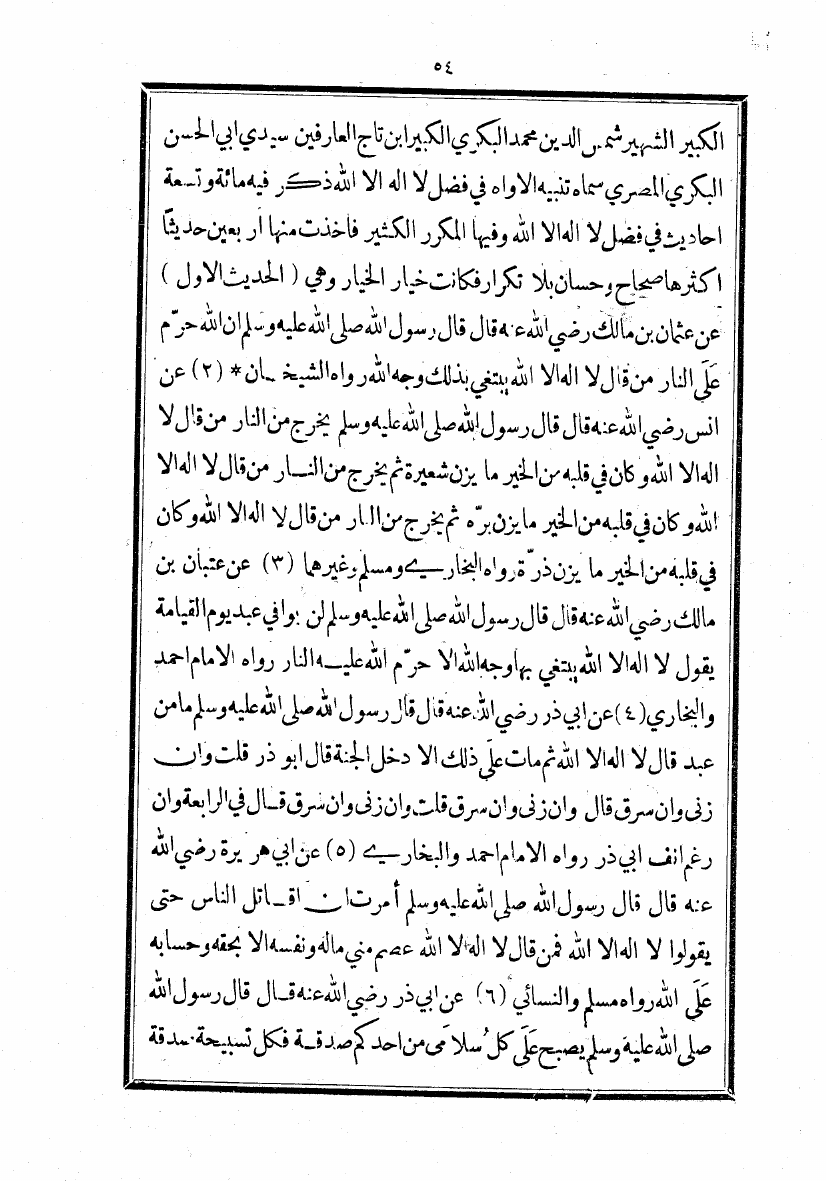 ٥٤
الكبير الشهير شمس الدين محمد البكري الكبير ابن تاج العارفين سيدي ابي الحسن
البكري المصري سماه تنبيه الاواه في فضل لا اله الا الله ذكر فيه مائة وتسعة
احاديث في فضل لا اله الا الله وفيها المكرر الكثير فاخذت منها اربعين حديثاً
اكثرها صحاح وحسان بلا تكرار فكانت خيار الخيار وهي ( الحديث الاول )
عن عثمان بن مالك رضي الله عنه قال قال رسول الله صلى الله عليه وسلم ان الله حرّم
عَلَى النار من قال لا اله الا الله يبتغي بذلك وجه الله رواه الشيخان * (٢) عن
انس رضي الله عنه قال قال رسول الله صلى الله عليه وسلم يخرج من النار من قال لا
اله الا الله وكان في قلبه من الخير ما يزن شعيرة ثم يخرج من النار من قال لا اله الا
الله وكان في قلبه من الخير ما يزن برّه ثم يخرج من النار من قال لا اله الا الله وكان
في قلبه من الخير ما يزن ذرّة رواه البخاري ومسلم وغيرهما (٣) عن عتبان بن
مالك رضي الله عنه قال قال رسول الله صلى الله عليه وسلم لن يوافي عبد يوم القيامة
يقول لا اله الا الله يبتغي بها وجه الله الا حرّم الله عليه النار رواه الامام احمد
والبخاري (٤) عن ابي ذر رضي الله عنه قال قال رسول الله صلى الله عليه وسلم ما من
عبد قال لا اله الا الله ثم مات عَلَى ذلك الا دخل الجنة قال ابو ذر قلت وان
زنى وان سرق قال وان زنى وان سرق قلت وان زنى وان سرق قال في الرابعة وان
رغم انف ابي ذر رواه الامام احمد والبخاري (٥) عن ابي هريرة رضي الله
عنه قال قال رسول الله صلى الله عليه وسلم أُمرت ان اقاتل الناس حتى
يقولوا لا اله الا الله فمن قال لا اله الا الله عصم مني ماله ونفسه الا بحقه وحسابه
عَلَى الله رواه مسلم والنسائي (٦) عن ابي ذر رضي الله عنه قال قال رسول الله
صلى الله عليه وسلم يصبح عَلَى كل سُلامَى من احدكم صدقة فكل تسبيحة صدقة